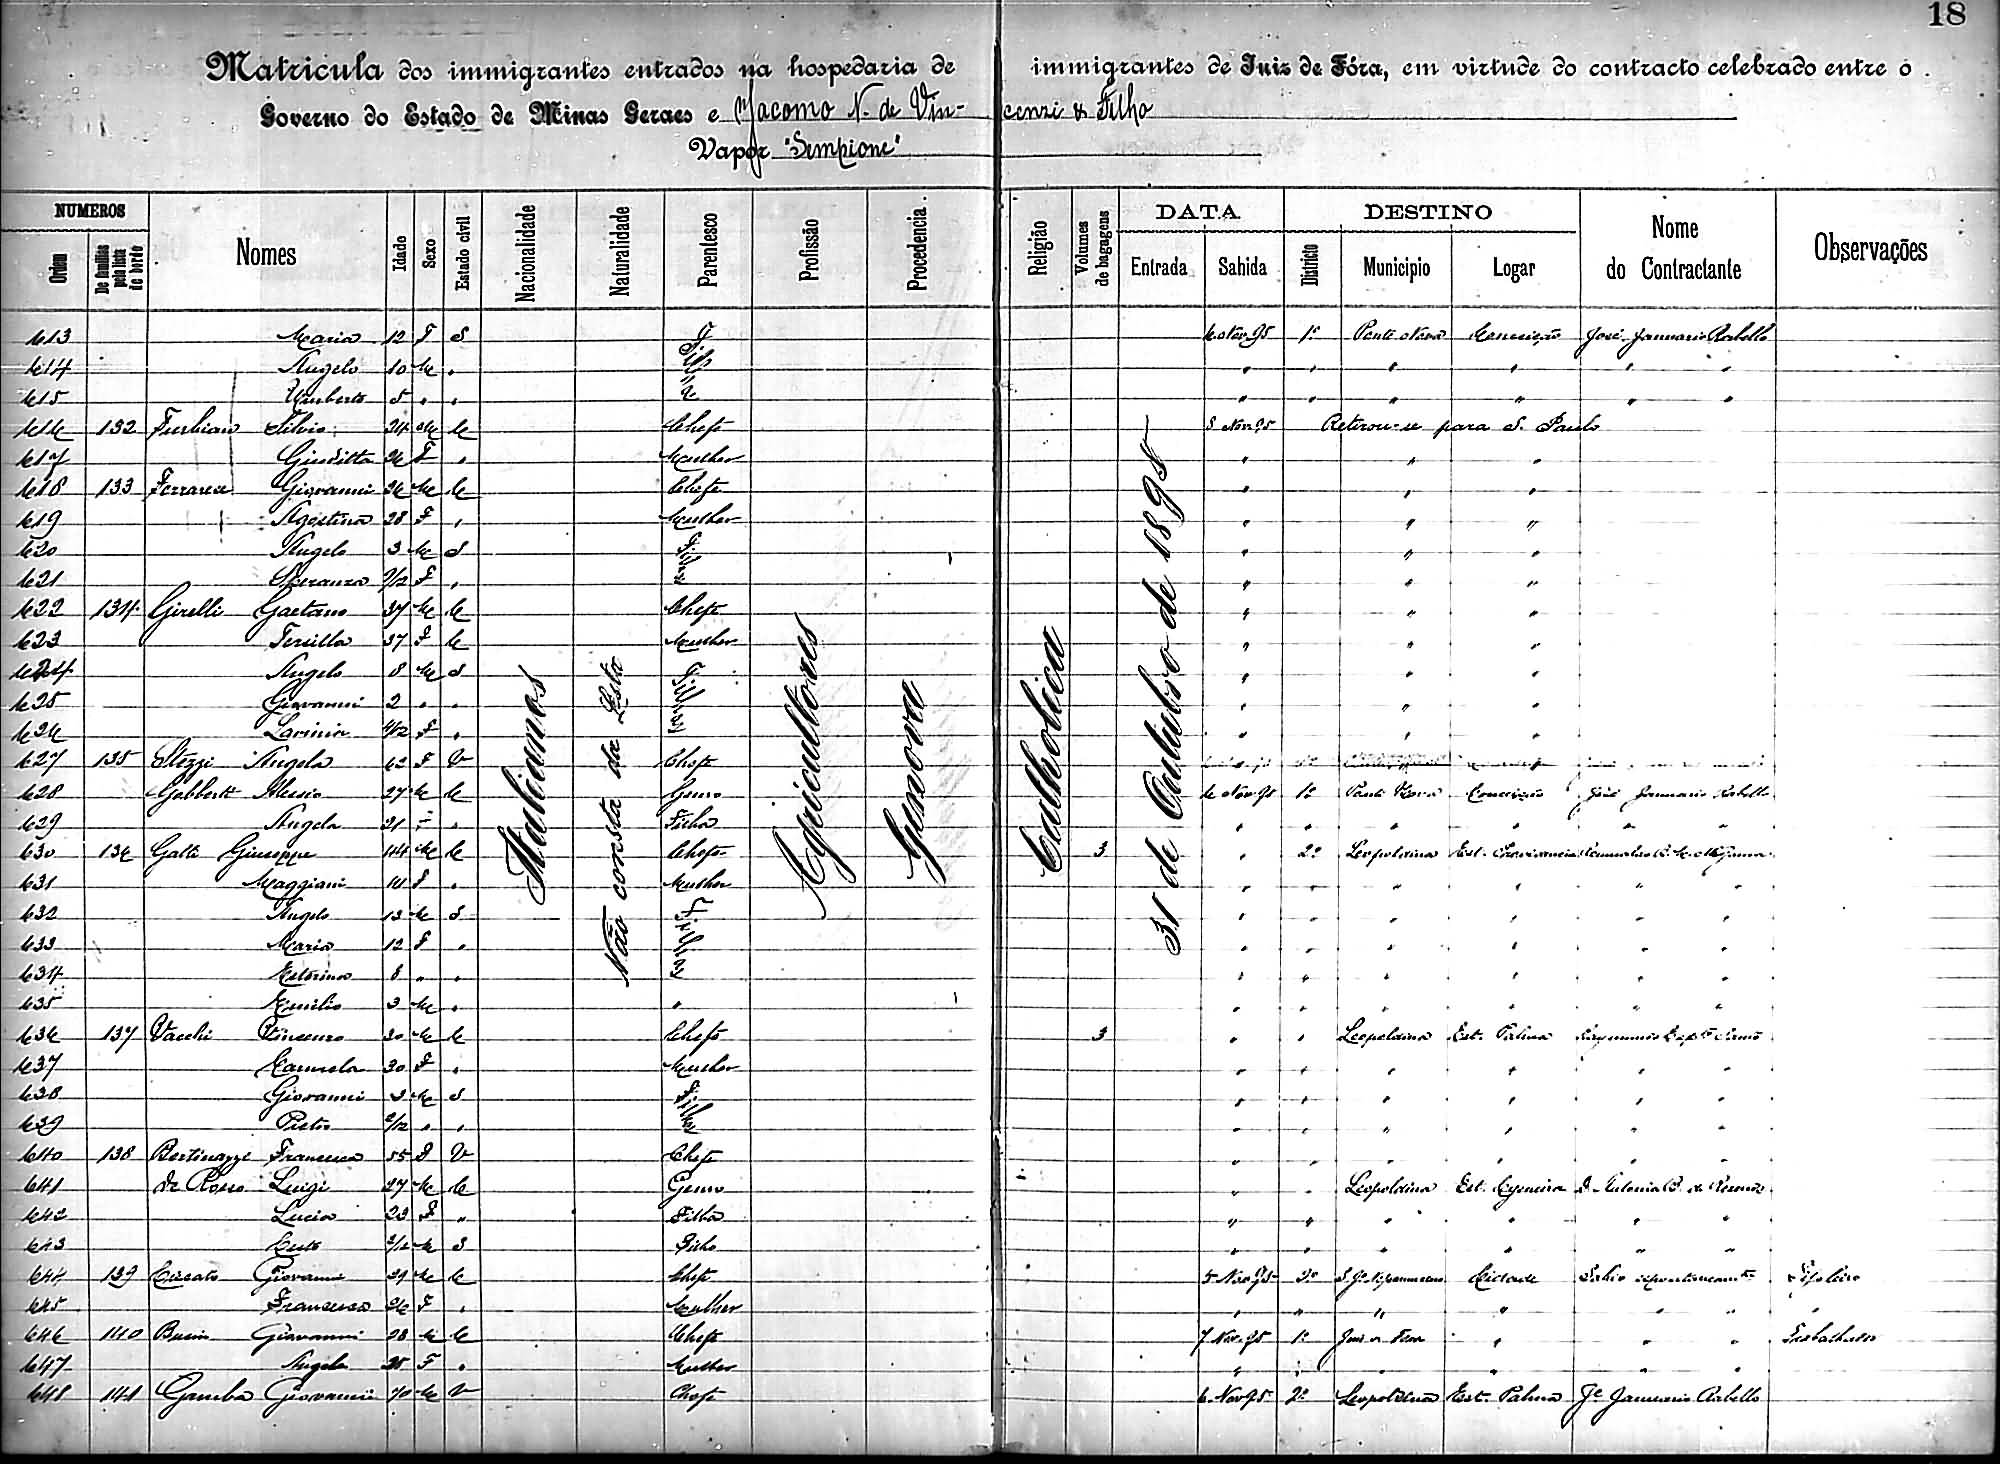 18
Matricula dos immigrantes entrados na hospedaria de immigrantes de Juiz de Fóra, em virtude do contracto celebrado entre o
Governo do Estado de Minas Geraes e Giacomo N. de Vincenzi & Filho
Vapor "Sempione"
NUMEROS
Ordem
De familias pela lista de bordo
Nomes
Idade
Sexo
Estado civil
Nacionalidade
Naturalidade
Parentesco
Profissão
Procedencia
Religião
Volumes de bagagens
DATA
Entrada
Sahida
DESTINO
Districto
Municipio
Logar
Nome do Contractante
Observações
Italianos
Não consta da Lista
Agricultores
Genova
Catholica
31 de Outubro de 1895
613 Maria 12 F S 6 Nov 95 1º Ponte Nova Conceição José Januario Rabello
614 Angelo 10 M " " " " " " "
615 Umberto 5 " " " " " " " "
616 132 Furlan Silvio 24 M C Chefe 5 Nov 95 Retirou-se para S. Paulo
617 Giuditta 26 F " Mulher " " "
618 133 Ferrarese Giovanni 26 M C Chefe " " "
619 Agostina 28 F " Mulher " " "
620 Angelo 3 M S Filhos " " "
621 Speranza 9/12 F " " " "
622 134 Girelli Gaetano 37 M C Chefe " " "
623 Tersilla 37 F C Mulher " " "
624 Angelo 8 M S Filhos " " "
625 Giovanni 2 " " " " "
626 Lavinia 4/12 F " " " "
627 135 Stezzi Angela 62 F V Chefe
628 Gobbetti Alessio 27 M C Genro 6 Nov 95 1º Ponte Nova Conceição José Januario Rabello
629 Angela 21 F " Filha " " " " " "
630 136 Gatti Giuseppe 44 M C Chefe 3 " 2º Leopoldina Est. Providencia
631 Maggiani 40 F " Mulher " " " " " "
632 Angelo 13 M S Filhos " " " " " "
633 Maria 12 F " " " " " " "
634 8 " " " " " " " "
635 Emilio 3 M " " " " " " " "
636 137 Vacchi Vincenzo 30 M C Chefe 3 " " Leopoldina Est. Palma
637 Carmela 30 F " Mulher " " " " " "
638 Giovanni 3 M S Filhos " " " " " "
639 Pietro 2/12 " " " " " " " "
640 138 Bertinazzi Francesca 55 F V Chefe " " " " " "
641 De Rosso Luigi 27 M C Genro " " Leopoldina Est. D. Antonio B. de Rezende
642 Lucia 23 F " Filha " " " " " "
643 2/12 M S Filho " " " " " "
644 139 Ceccato Giovanni 29 M C Chefe 5 Nov 95 2º S. Jº Nepomuceno Cidade Sahio espontaneamte
645 Francesca 26 F " Mulher " " " " " " "
646 140 Busin Giovanni 28 M C Chefe 7 Nov 95 1º Juiz de Fora " " " Trabalhador
647 Angela 25 F " Mulher " " " " "
648 141 Gamba Giovanni 70 M V Chefe 6 Nov 95 2º Leopoldina Est. Palma Jé Januario Rabello